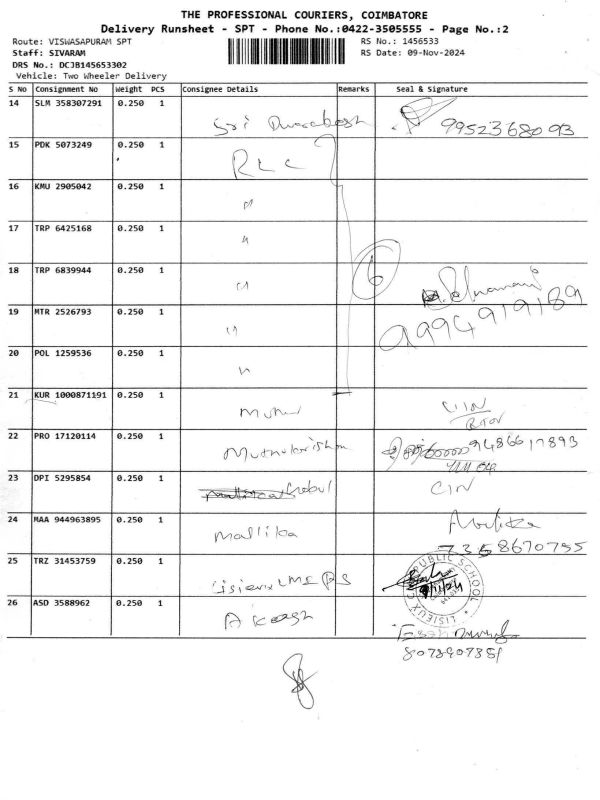 THE PROFESSIONAL COURIERS, COIMBATORE
Delivery Runsheet - SPT - Phone No.:0422-3505555 - Page No.:2
Route: VISWASAPURAM SPT RS No.: 1456533
Staff: SIVARAM RS Date: 09-Nov-2024
DRS No.: DCJB145653302
Vehicle: Two Wheeler Delivery
S No Consignment No Weight PCS Consignee Details Remarks Seal & Signature
14 SLM 358307291 0.250 1 Sri 9952368093
15 PDK 5073249 0.250 1 RLC
16 KMU 2905042 0.250 1 "
17 TRP 6425168 0.250 1 "
18 TRP 6839944 0.250 1 " 6
19 MTR 2526793 0.250 1 " 9994919189
20 POL 1259536 0.250 1 "
21 KUR 1000871191 0.250 1
22 PRO 17120114 0.250 1 Muthukrishnan 9486617893
23 DPI 5295854 0.250 1 CIN
24 MAA 944963895 0.250 1 Mallika Mallika
7358670755
25 TRZ 31453759 0.250 1 Lisieux PUBLIC SCHOOL LISIEUX
26 ASD 3588962 0.250 1 Akash
8078907351